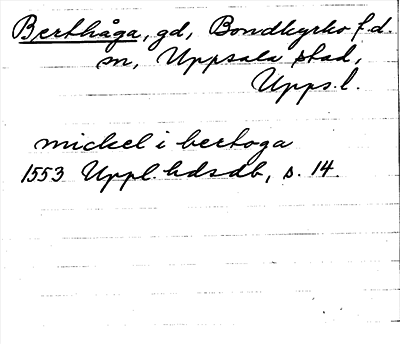 Berthåga, gd, Bondkyrko f.d.
sn, Uppsala stad,
Upps.l.
mickel i bertoga
1553 Uppl. hdsdb, s. 14.